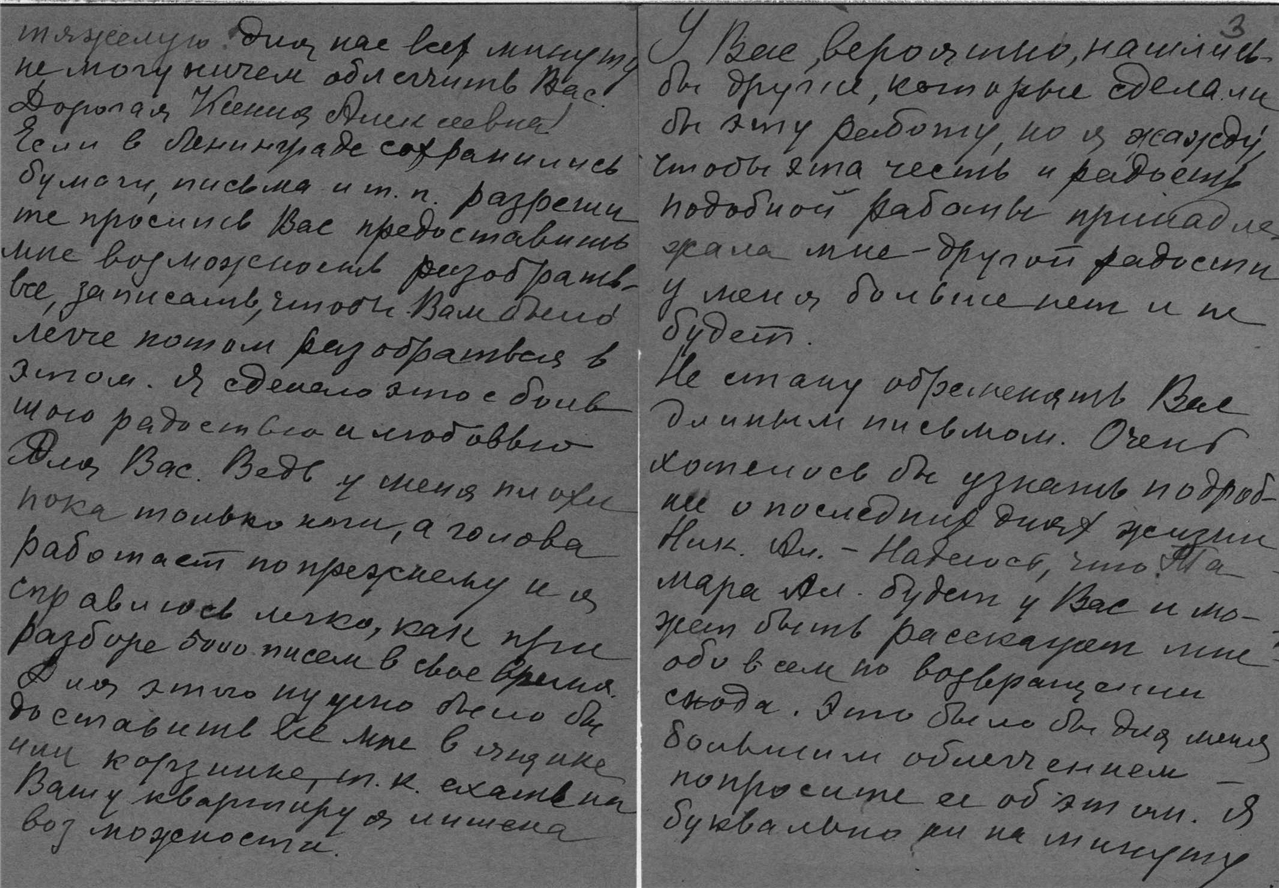 тяжелую для нас всех минуту
не могу ничем облегчить Вас.
Дорогая Ксения Алексеевна!
Если в Ленинграде сохранились
бумаги, письма и т. п. разреши
те просить Вас предоставить
мне возможность разобрать
все, записать, чтобы Вам было
легче потом разобраться в
этом. Я сделаю это с боль
шою радостью и любовью
для Вас. Ведь у меня плохи
пока только ноги, а голова
работает попрежнему и я
справлюсь легко, как при
разборе 5000 писем в свое время.
Для этого нужно было бы
доставить все мне в ящике
или корзинке, т. к. ехать на
Вашу квартиру я лишена
возможности.
3
У Вас, вероятно, нашлись
бы другие, которые сделали
бы эту работу, но я жажду,
чтобы эта честь и радость
подобной работы принадле
жала мне – другой радости
у меня больше нет и не
будет.
Не стану обременять Вас
длинным письмом. Очень
хотелось бы узнать подроб-
нее о последних днях жизни
Ник. Ал. – Надеюсь, что Та-
мара Ал. будет у Вас и мо-
жет быть расскажет мне
обо всем по возвращении
сюда. Это было бы для меня
большим облегчением –
попросите ее об этом. Я
буквально ни на минуту